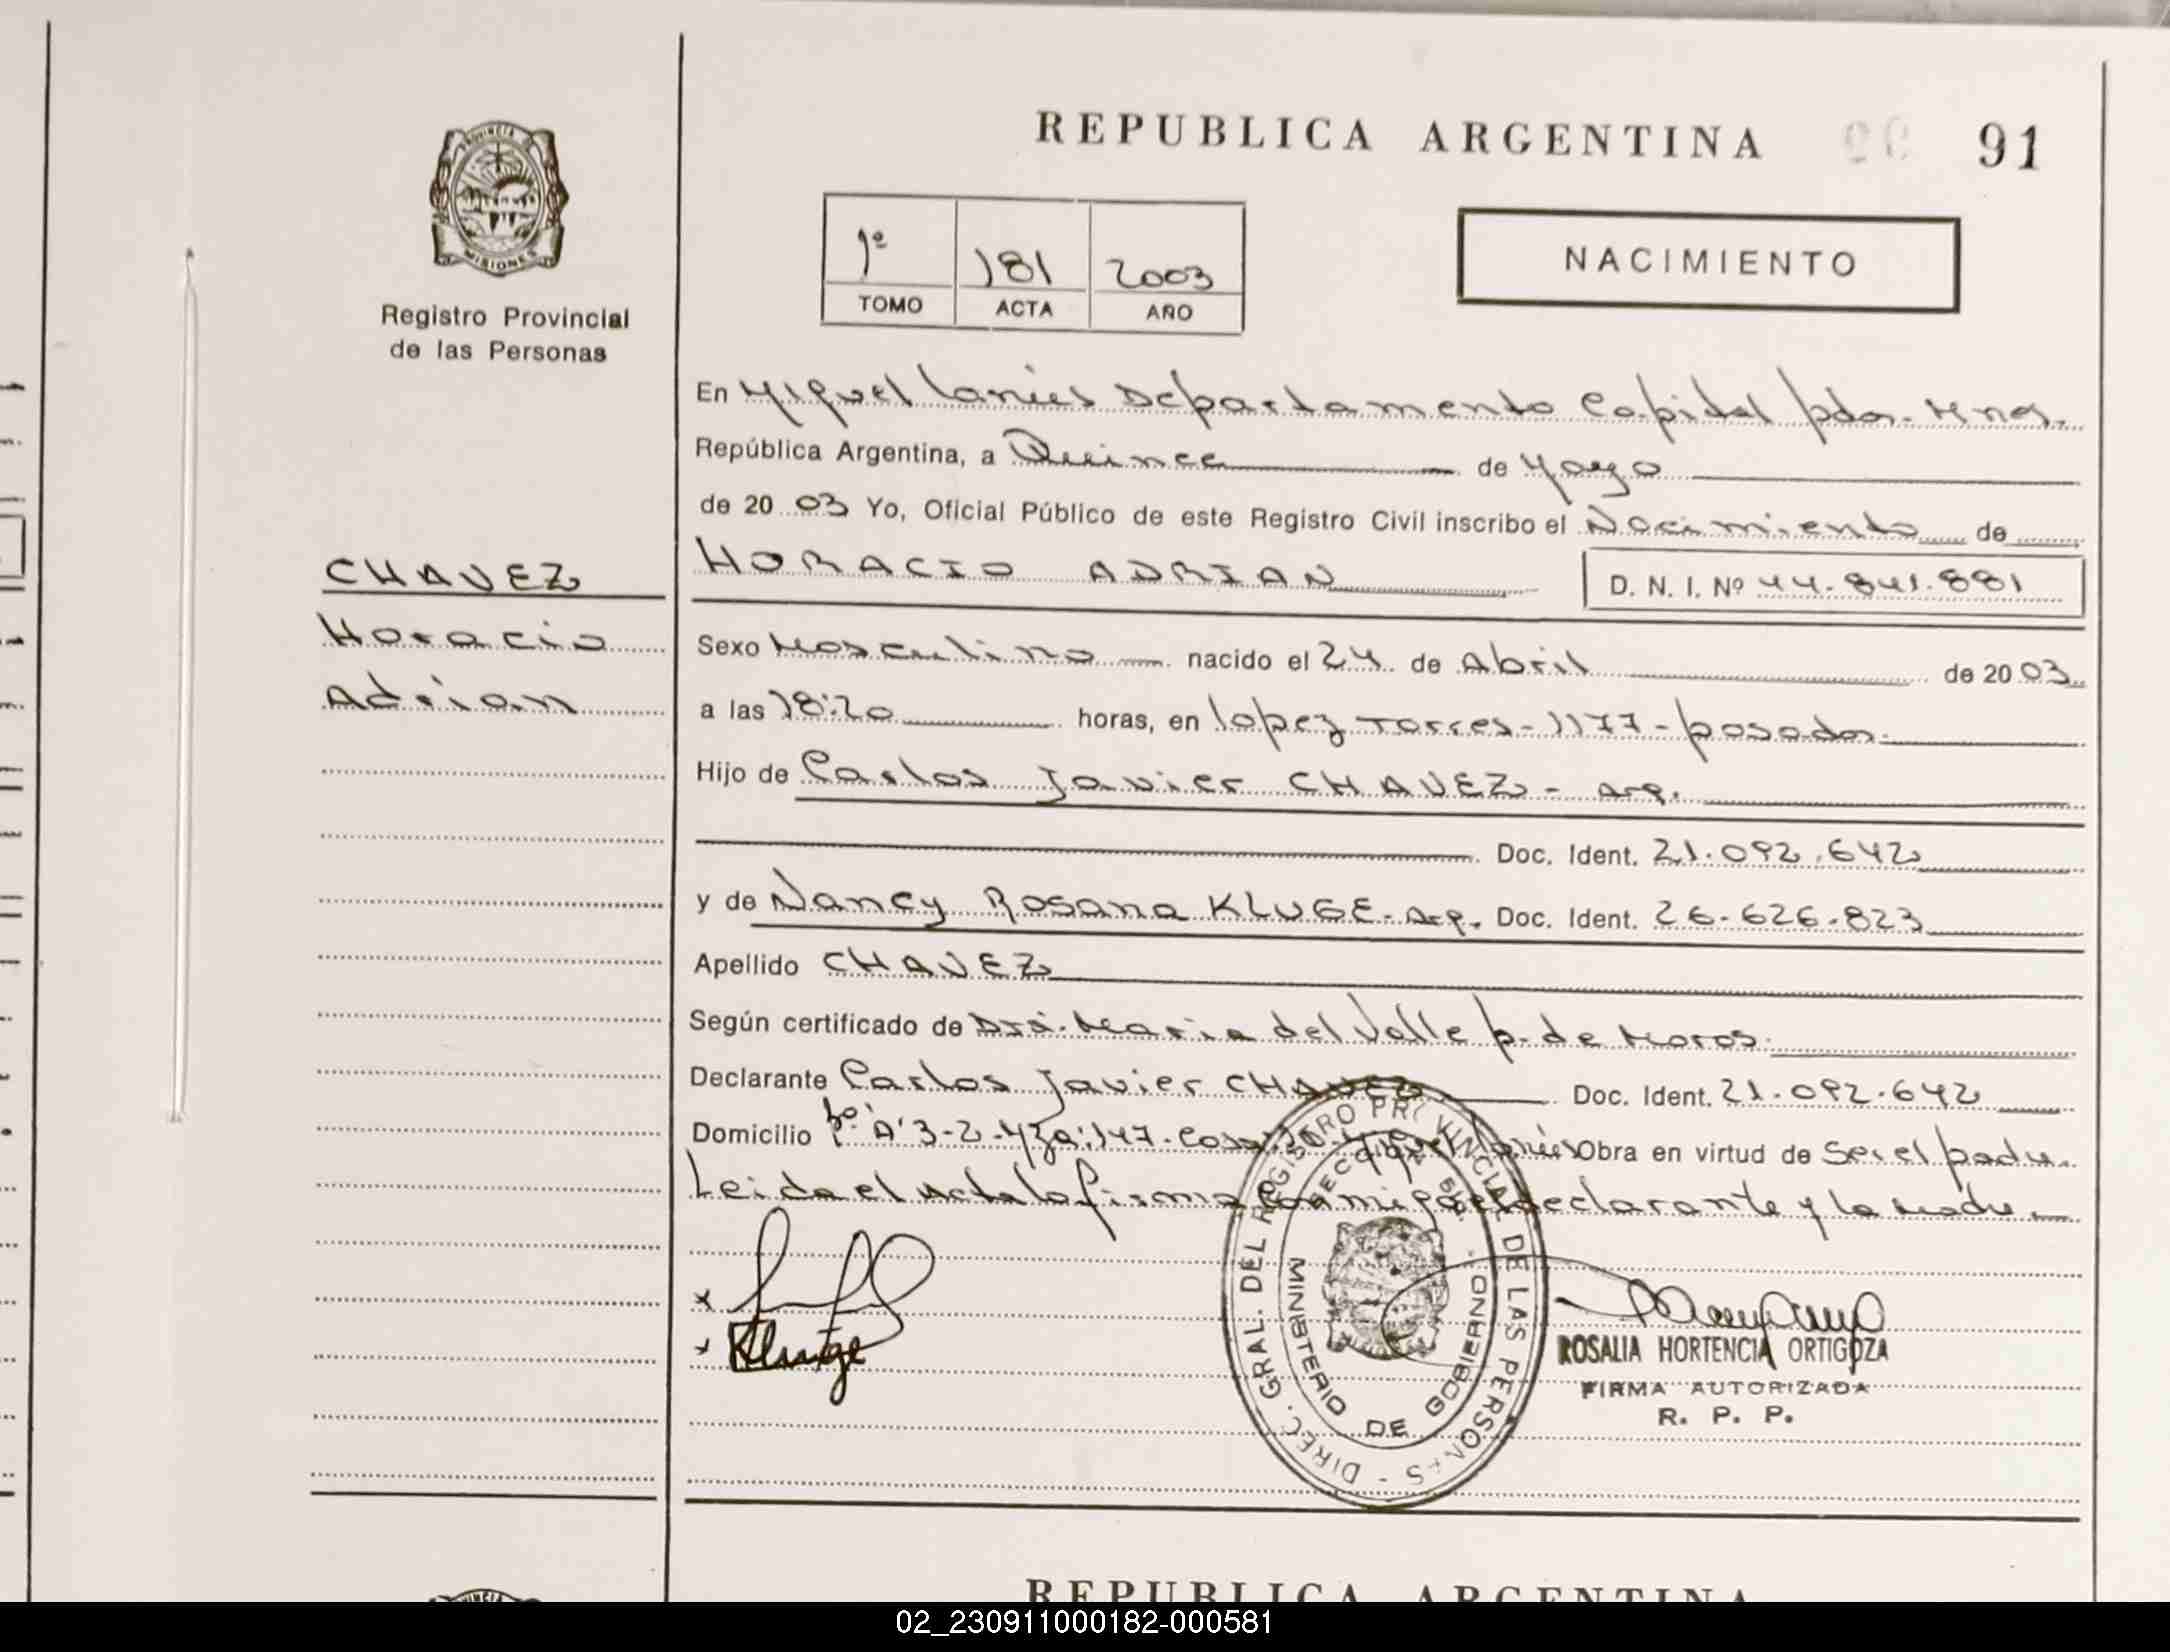 REPUBLICA ARGENTINA 91
PROVINCIA DE
MISIONES
Registro Provincial
de las Personas
1º 181 2003
TOMO ACTA AÑO
NACIMIENTO
En Miguel Lanús Departamento Capital pdas. Mnes.
República Argentina, a Quince de Mayo
de 2003 Yo, Oficial Público de este Registro Civil inscribo el Nacimiento de
HORACIO ADRIAN D. N. I. Nº 44.841.881
CHAVEZ
Horacio
Adrian
Sexo Masculino nacido el 24 de Abril de 2003
a las 18:20 horas, en Lopez Torres-1177-posadas.
Hijo de Carlos Javier CHAVEZ- Arg.
Doc. Ident. 21.092.642
y de Nancy Rosana KLUGE-Arg. Doc. Ident. 26.626.823
Apellido CHAVEZ
Según certificado de Dra. Maria del Valle p. de Moros.
Declarante Carlos Javier CHAVEZ Doc. Ident. 21.092.642
Domicilio "A" 3-2-Mza:147-Casa Miguel Lanús Obra en virtud de Ser el padre.
Leida el Acta la firma con migo el declarante y la Madre
Kluge
DIREC. GRAL. DEL REGISTRO PROVINCIAL DE LAS PERSONAS
MINISTERIO DE GOBIERNO
ROSALIA HORTENCIA ORTIGOZA
FIRMA AUTORIZADA
R. P. P.
REPUBLICA ARGENTINA
02_230911000182-000581